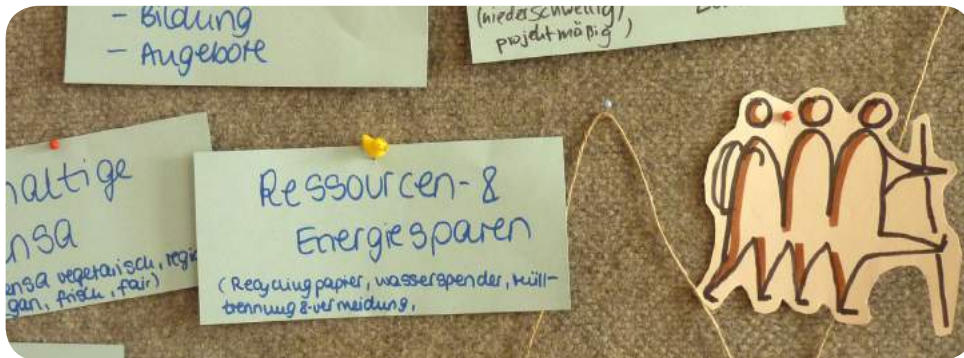 - Bildung
- Angebote
(niederschwellig,
projektmäßig)
haltige
nsa
ensa vegetarisch, regio
gan, frisch, fair)
Ressourcen- &
Energiesparen
(Recyclingpapier, wasserspender, Müll-
trennung & vermeidung,